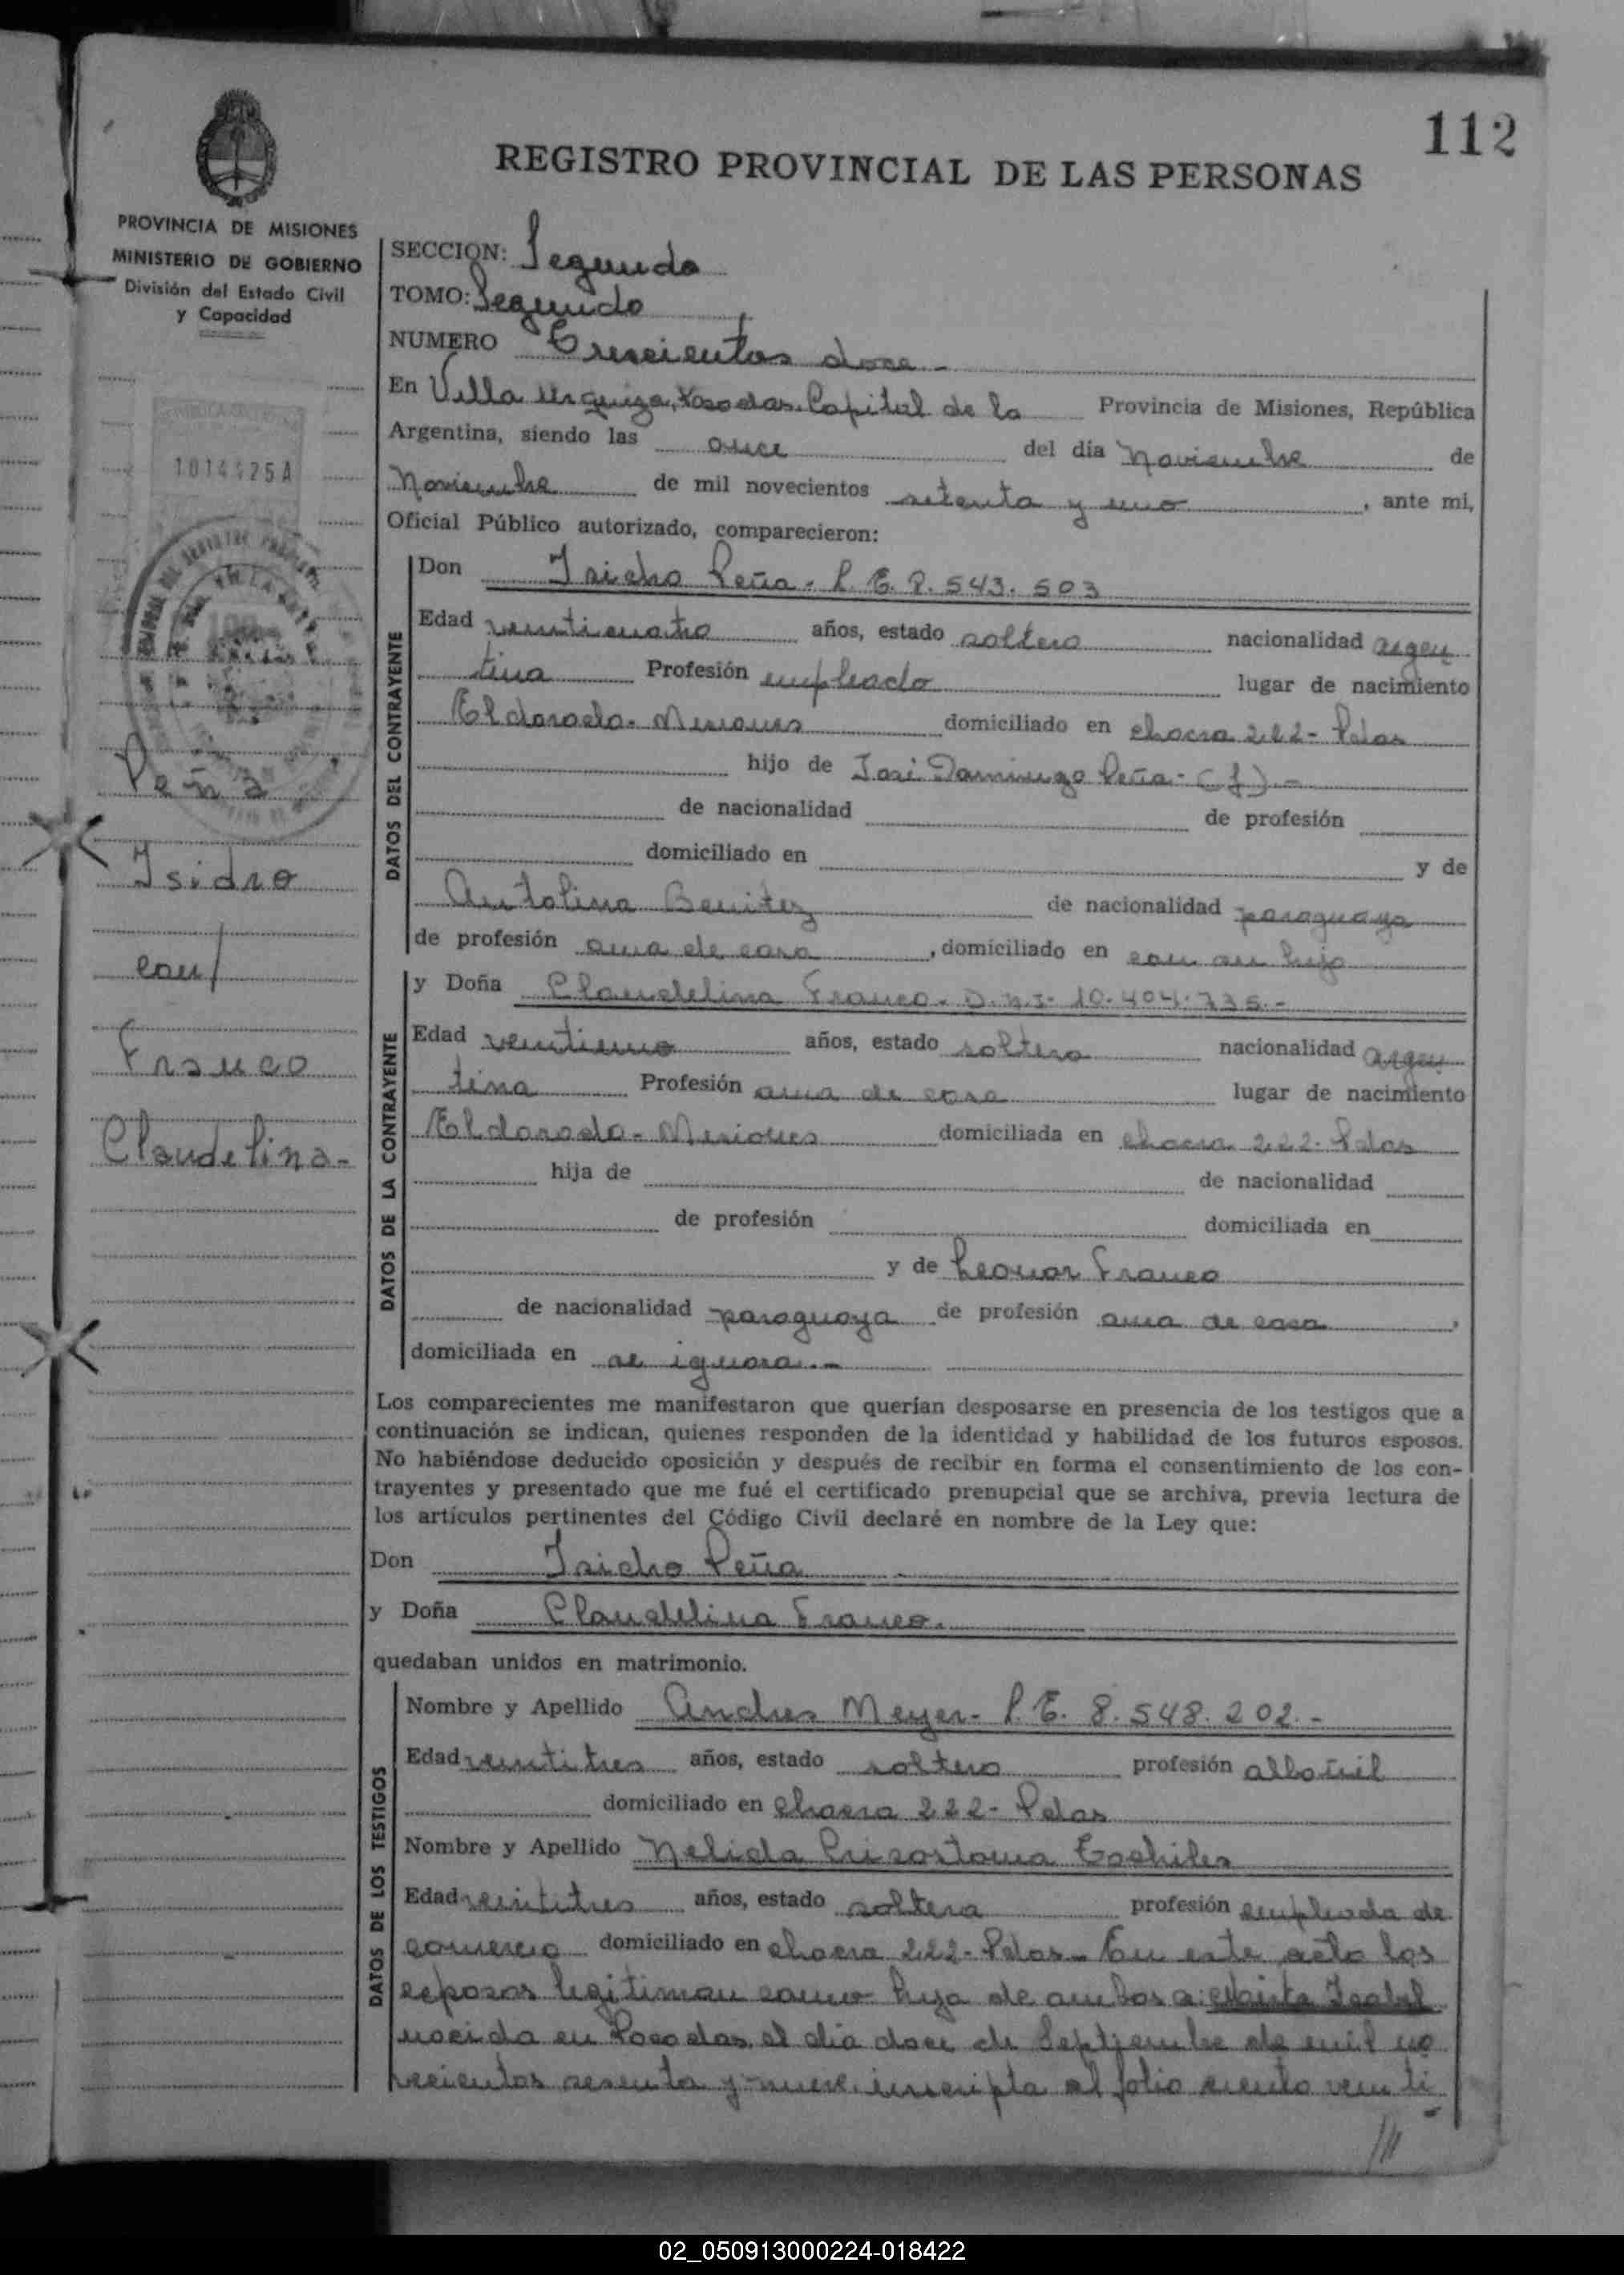 112
REGISTRO PROVINCIAL DE LAS PERSONAS
PROVINCIA DE MISIONES
MINISTERIO DE GOBIERNO
División del Estado Civil
y Capacidad
1014425A
Peña
Isidro
con/
Franco
Claudelina-
SECCION: Segunda
TOMO: Segundo
NUMERO Trescientos doce -
En Villa Urquiza, Posadas, Capital de la Provincia de Misiones, República
Argentina, siendo las once del día Noviembre de
Noviembre de mil novecientos setenta y uno, ante mi,
Oficial Público autorizado, comparecieron:
DATOS DEL CONTRAYENTE
Don Isidro Peña - L.E. 8.543.503
Edad veinticuatro años, estado soltero nacionalidad argen
tina Profesión empleado lugar de nacimiento
Eldorado - Misiones domiciliado en chacra 222 - Pdas
hijo de José Domingo Peña - (f) -
de nacionalidad de profesión
domiciliado en y de
Antolina Benitez de nacionalidad paraguaya
de profesión ama de casa, domiciliado en con su hijo
DATOS DE LA CONTRAYENTE
y Doña Claudelina Franco - D.N.I. 10.404.735 -
Edad veintiuno años, estado soltera nacionalidad argen
tina Profesión ama de casa lugar de nacimiento
Eldorado - Misiones domiciliada en chacra 222 - Pdas
hija de de nacionalidad
de profesión domiciliada en
y de Leonor Franco
de nacionalidad paraguaya de profesión ama de casa,
domiciliada en se ignora -
Los comparecientes me manifestaron que querían desposarse en presencia de los testigos que a
continuación se indican, quienes responden de la identidad y habilidad de los futuros esposos.
No habiéndose deducido oposición y después de recibir en forma el consentimiento de los con-
trayentes y presentado que me fué el certificado prenupcial que se archiva, previa lectura de
los artículos pertinentes del Código Civil declaré en nombre de la Ley que:
Don Isidro Peña
y Doña Claudelina Franco.
quedaban unidos en matrimonio.
DATOS DE LOS TESTIGOS
Nombre y Apellido Andres Meyer - L.E. 8.548.202 -
Edad veintitres años, estado soltero profesión albañil
domiciliado en chacra 222 - Pdas
Nombre y Apellido Nelida Crisostoma
Edad veintitres años, estado soltera profesión empleada de
comercio domiciliado en chacra 222 - Pdas - En este acto los
esposos legitiman como hija de ambos a:
nacida en Posadas, el dia doce de Septiembre de mil no
vecientos sesenta y nueve, inscripta al folio ciento veinti
02_050913000224-018422